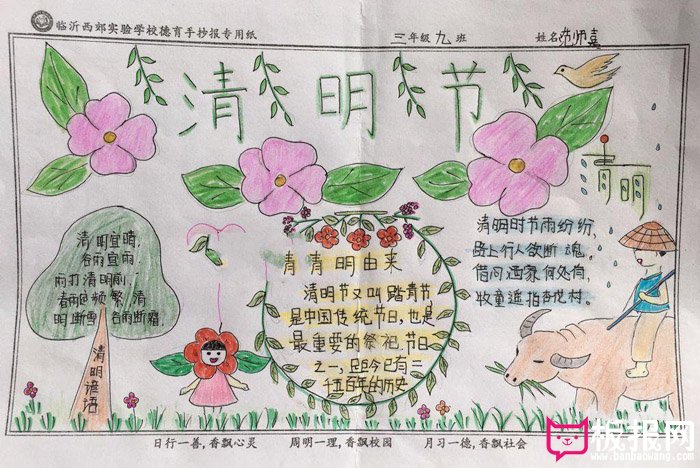 临沂西郊实验学校德育手抄报专用纸
三年级九班
姓名
清明节
清明
清明宜晴,
谷雨宜雨
雨打清明前,
春雨频繁 清
明断雪 谷雨断霜
清明谚语
清明由来
清明节又叫踏青节
是中国传统节日,也是
最重要的祭祀节日
之一,距今已有二
千五百年的历史
清明时节雨纷纷,
路上行人欲断魂,
借问酒家何处有,
牧童遥指杏花村。
日行一善,香飘心灵
周明一理,香飘校园
月习一德,香飘社会
板报网
www.banbaowang.com